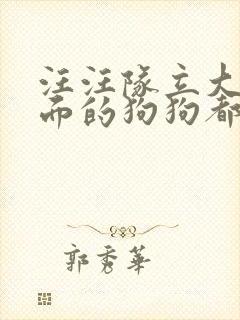 汪汪队立大
而的狗狗都
郭秀华